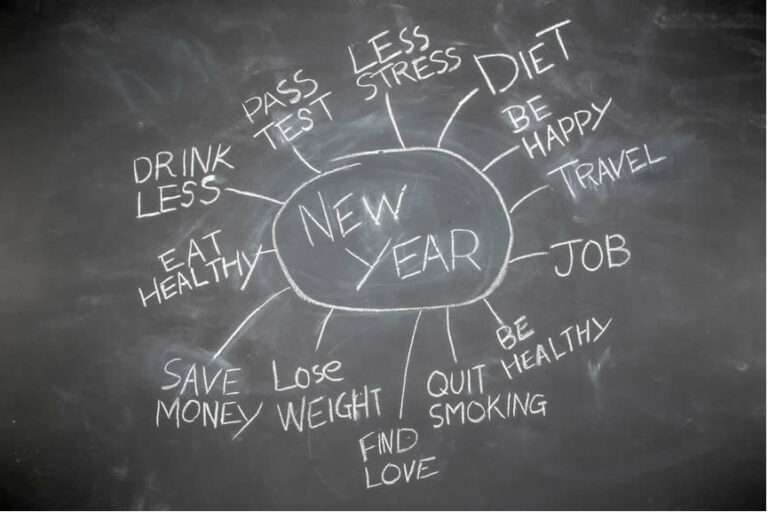 LESS
STRESS
DIET
PASS
TEST
BE
HAPPY
DRINK
LESS
TRAVEL
NEW
YEAR
EAT
HEALTHY
JOB
BE
HEALTHY
SAVE
MONEY
LOSE
WEIGHT
QUIT
SMOKING
FIND
LOVE